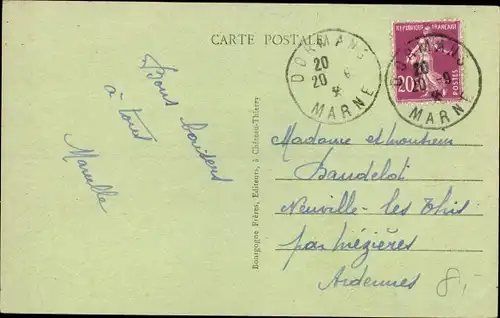 CARTE POSTALE
Bons baisers
à tous
Marcelle
Bourgogne Frères, Editeurs, à Château-Thierry
DORMANS
20
20 - 9
*
MARNE
REPUBLIQUE FRANÇAISE
20
POSTES
DORMANS
20
20 - 9
*
MARNE
Madame et monsieur
Baudelot
Neuville-les-This
par Mézières
Ardennes
8,-